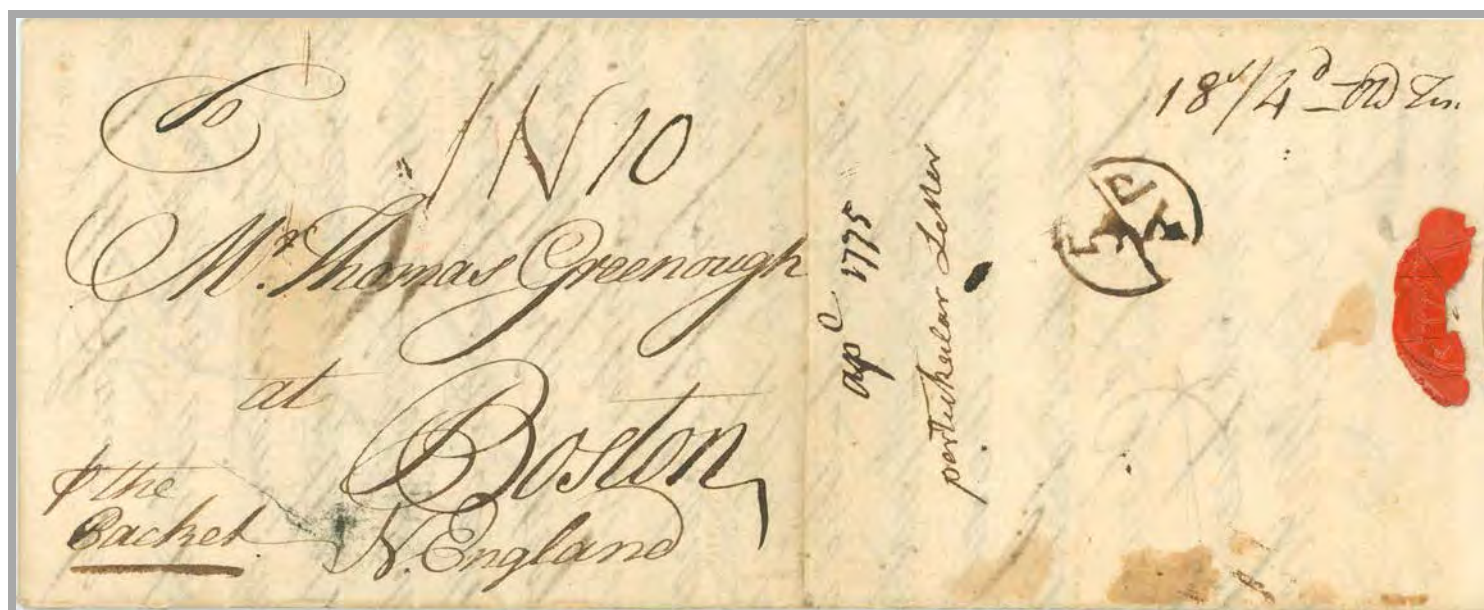 To
1N10
Mr. Thomas Greenough
at
Boston
N. England
the
Packet
ap 1775
pertickular Letter
18/4d Old Ten.